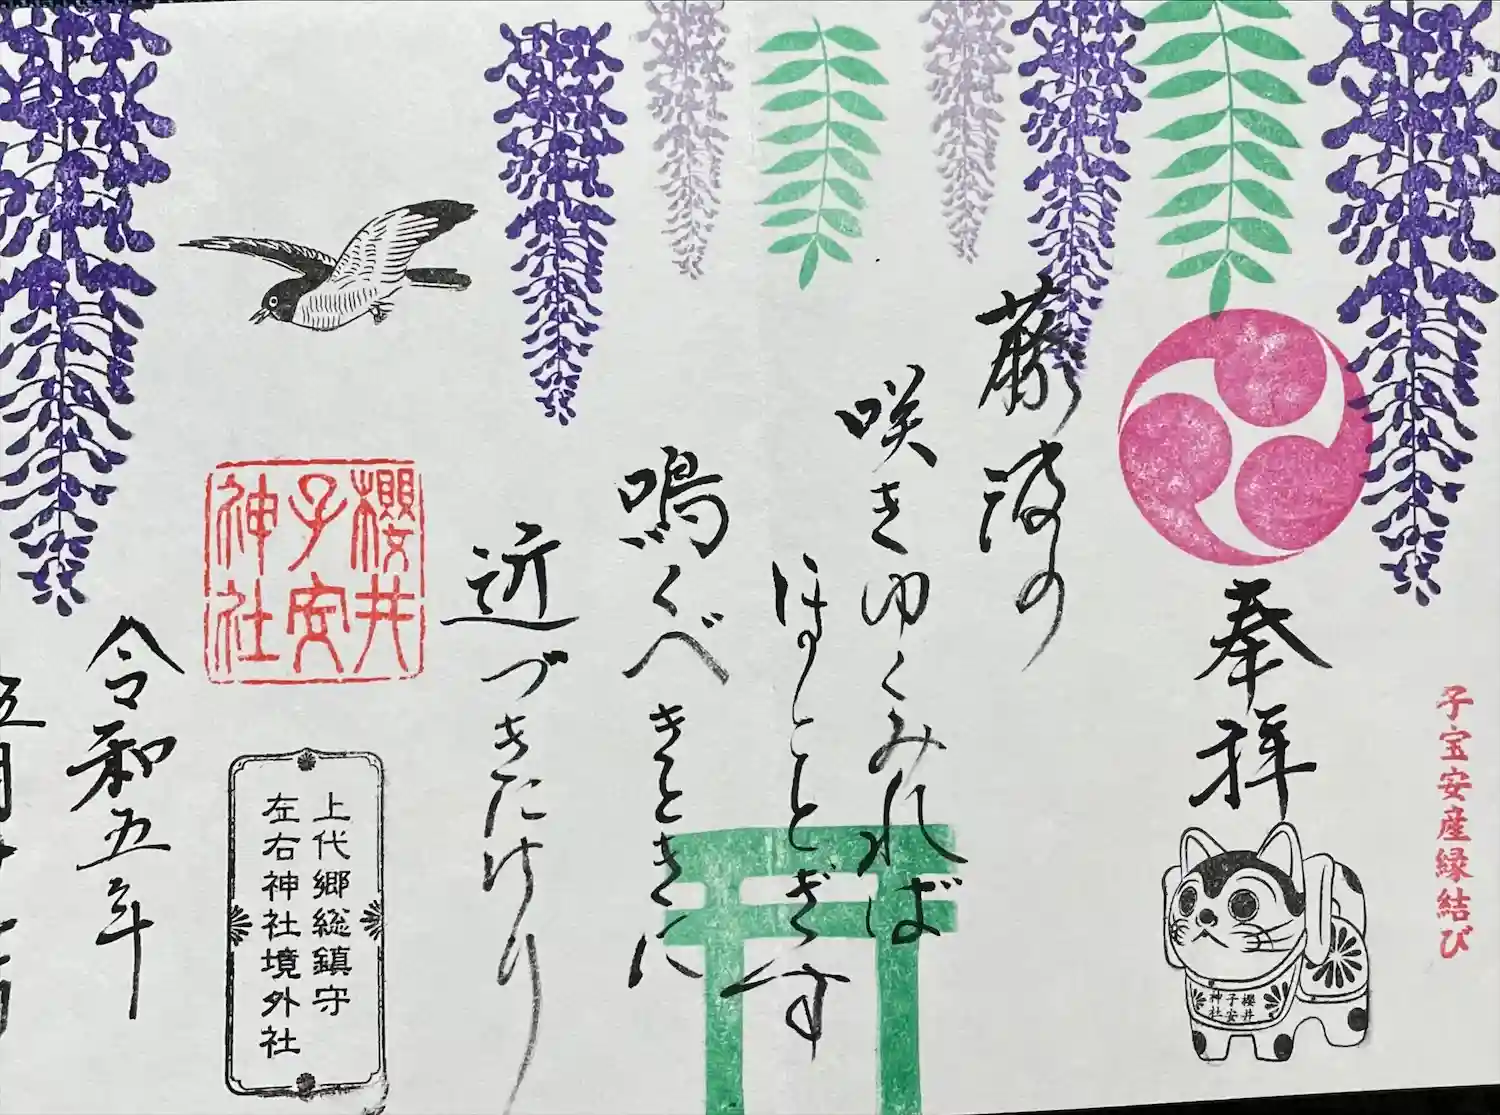 子宝安産縁結び
奉拝
櫻井
子安
神社
藤波の
咲きゆくみれば
ほとゝぎす
鳴くべきときに
近づきたけり
櫻井
子安
神社
上代郷総鎮守
左右神社境外社
令和五年
五月